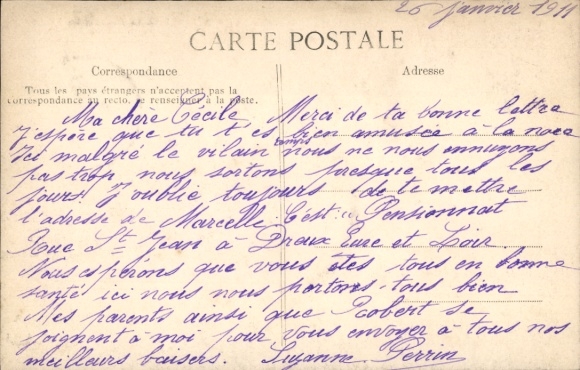 26 janvier 1911
CARTE POSTALE
Correspondance
Adresse
Tous les pays étrangers n'acceptent pas la
correspondance au recto, se renseigner à la poste.
Ma chère Cécile, Merci de ta bonne lettre
J'espère que tu t'es bien amusée à la noce
Ici malgré le vilain temps nous ne nous ennuyons
pas trop nous sortons presque tous les
jours! J'oublie toujours de te mettre
l'adresse de Marcelle. C'est: Pensionnat
Rue St Jean à Dreux Eure et Loir
Nous espérons que vous êtes tous en bonne
santé ici nous nous portons tous bien
Mes parents ainsi que Robert se
joignent à moi pour vous envoyer à tous nos
meilleurs baisers. Suzanne Perrin